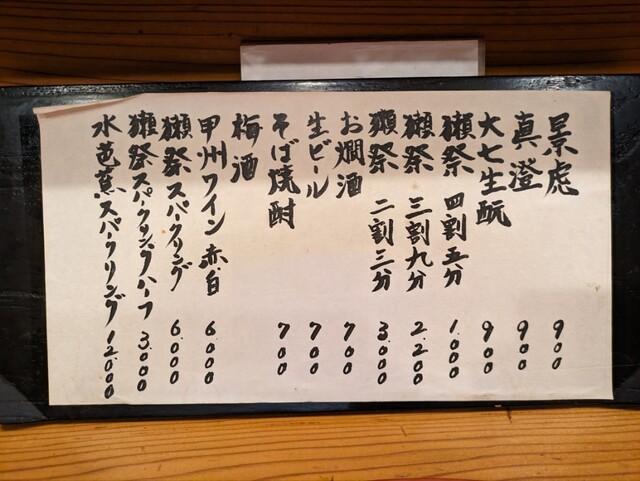 景虎 900
真澄 900
大七生酛 900
獺祭 四割五分 1.000
獺祭 三割九分 2.200
獺祭 二割三分 3.000
お燗酒 700
生ビール 700
そば焼酎 700
梅酒
甲州ワイン 赤.白 6.000
獺祭スパークリング 6.000
獺祭スパークリングハーフ 3.000
水芭蕉スパークリング 12.000